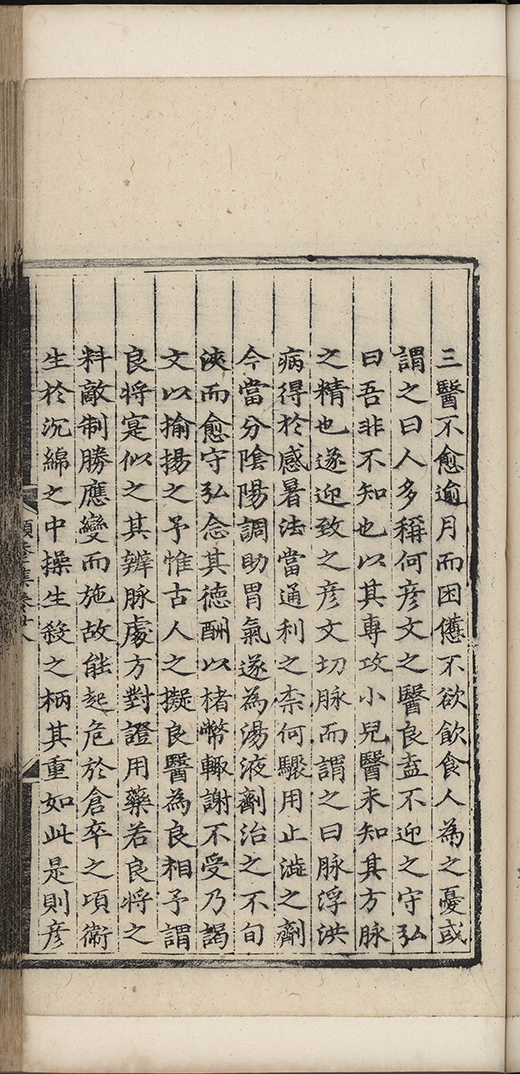 三醫不愈逾月而困憊不欲飲食人為之憂或
謂之曰人多稱何彦文之醫良盍不迎之守弘
曰吾非不知也以其專攻小兒醫未知其方脉
之精也遂迎致之彦文切脉而謂之曰脉浮洪
病得於感暑法當通利之柰何驟用止澁之劑
今當分陰陽調助胃氣遂為湯液劑治之不旬
浹而愈守弘念其徳酬以楮幣輙謝不受乃謁
文以揄揚之予惟古人之擬良醫為良相予謂
良将寔似之其辨脉處方對證用藥若良将之
料敵制勝應變而施故能起危於倉卒之頃衛
生於沉綿之中操生殺之柄其重如此是則彦